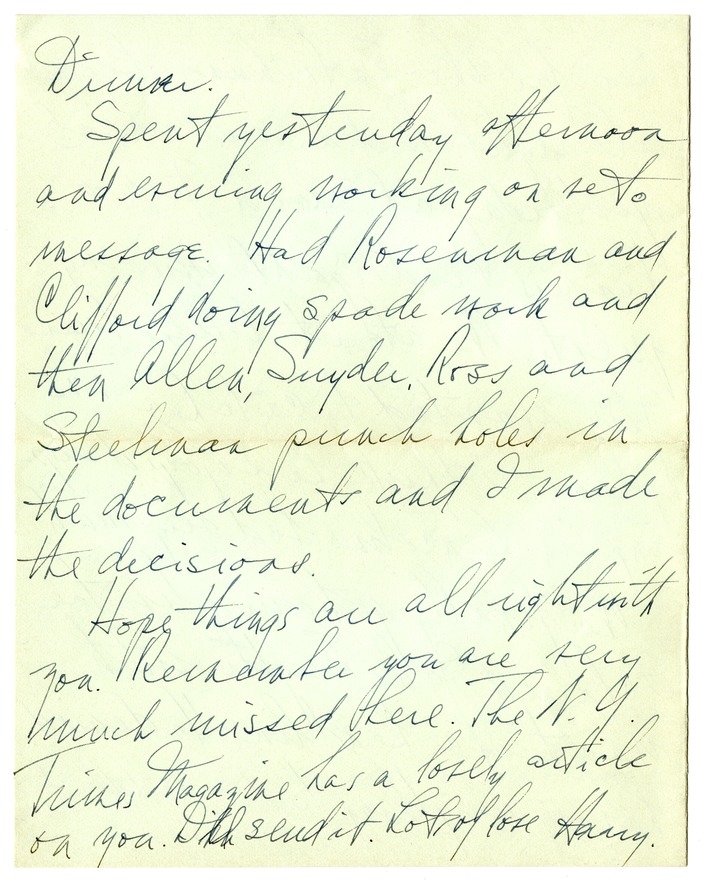 Dinner.
Spent yesterday afternoon
and evening working on veto
message. Had Rosenman and
Clifford doing spade work and
then Allen, Snyder, Ross and
Steelman punch holes in
the documents and I made
the decisions.
Hope things are all right with
you. Remember you are very
much missed here. The N.Y.
Times Magazine has a lovely article
on you. I'll send it. Lots of love Harry.